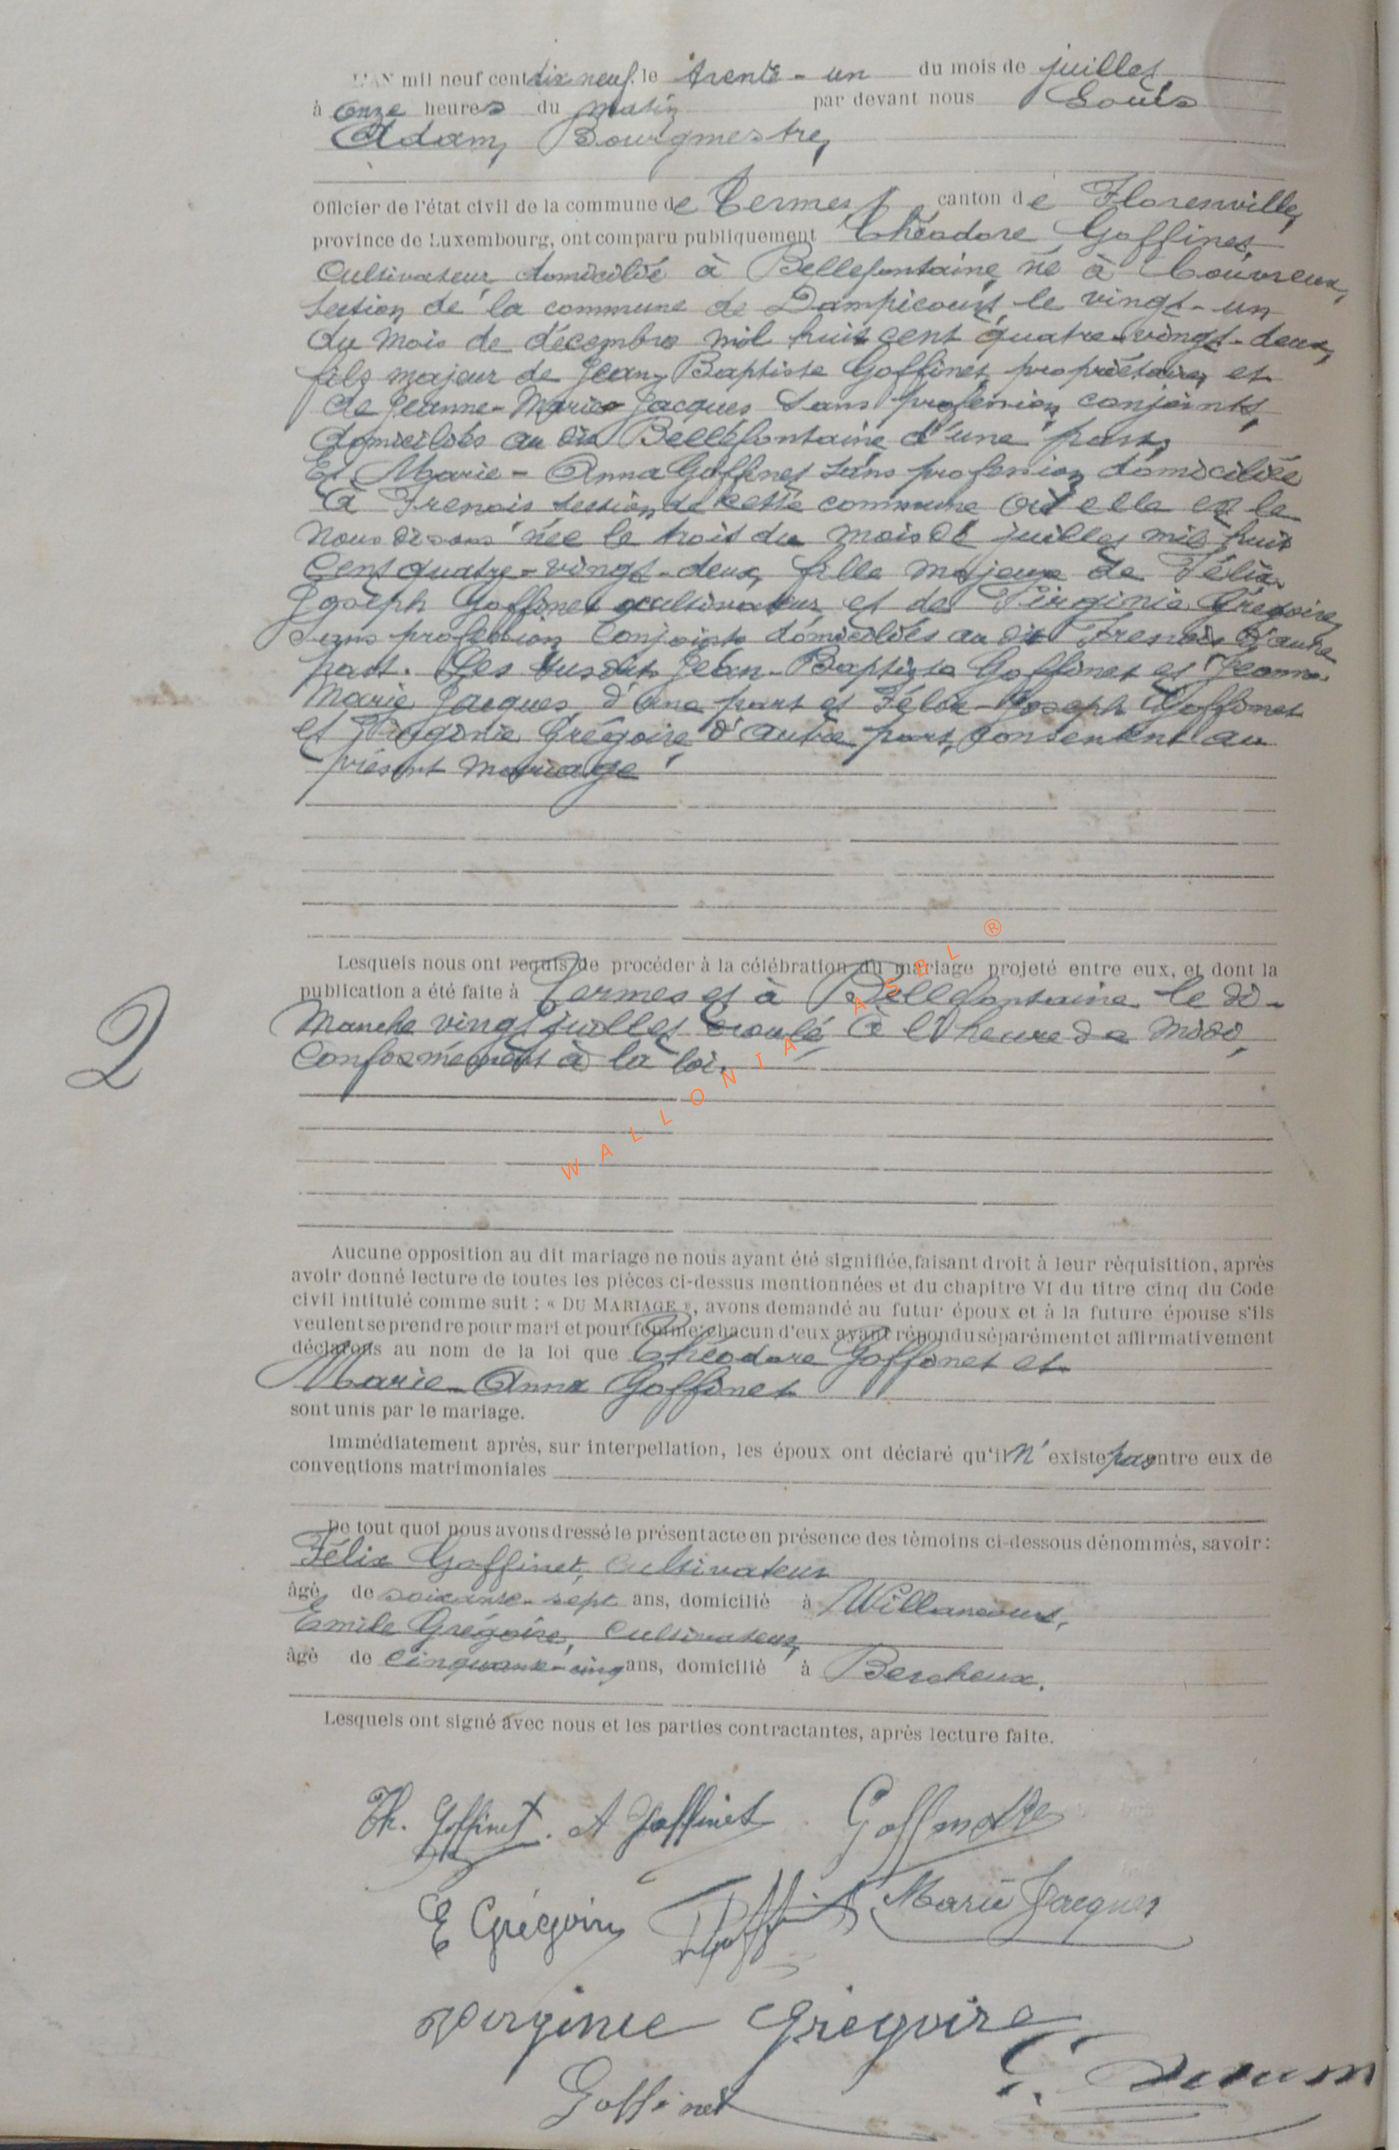 L'AN mil neuf cent dix neuf, le trente-un du mois de juillet
à onze heures du matin par devant nous Louis
Adam, Bourgmestre,
Officier de l'état civil de la commune de Termes, canton de Florenville,
province de Luxembourg, ont comparu publiquement Théodore Goffinet
Cultivateur domicilié à Bellefontaine, né à Couvreux,
section de la commune de Dampicourt, le vingt-un
du mois de décembre mil huit cent quatre-vingt-deux,
fils majeur de Jean-Baptiste Goffinet, propriétaire, et
de Jeanne-Marie Jacques sans profession, conjoints,
domiciliés au dit Bellefontaine d'une part,
Et Marie-Anna Goffinet sans profession domiciliée
à Frenois section de cette commune où elle est
nous disons née le trois du mois de juillet mil huit
Cent quatre-vingt-deux, fille majeure de Félix
Joseph Goffinet cultivateur et de Virginie Grégoire,
sans profession Conjoints domiciliés au dit Frenois d'autre
part. Les susdits Jean-Baptiste Goffinet et Jeanne
Marie Jacques, d'une part et Félix-Joseph Goffinet
et Virginie Grégoire d'autre part, consentent au
présent mariage.
Lesquels nous ont requis de procéder à la célébration du mariage projeté entre eux, et dont la
publication a été faite à Termes et à Bellefontaine le di-
manche vingt juillet écoulé à l'heure de midi,
Conformément à la loi.
2
WALLONIA ASBL ®
Aucune opposition au dit mariage ne nous ayant été signifiée, faisant droit à leur réquisition, après
avoir donné lecture de toutes les pièces ci-dessus mentionnées et du chapitre VI du titre cinq du Code
civil intitulé comme suit : « DU MARIAGE », avons demandé au futur époux et à la future épouse s'ils
veulent se prendre pour mari et pour femme; chacun d'eux ayant répondu séparément et affirmativement
déclarons au nom de la loi que Théodore Goffinet et
Marie-Anna Goffinet
sont unis par le mariage.
Immédiatement après, sur interpellation, les époux ont déclaré qu'il n'existe pas entre eux de
conventions matrimoniales
De tout quoi nous avons dressé le présent acte en présence des témoins ci-dessous dénommés, savoir :
Félix Goffinet, Cultivateur
âgé de soixante-sept ans, domicilié à Willancourt,
Emile Grégoire, Cultivateur,
âgé de Cinquante-cinq ans, domicilié à Bercheux.
Lesquels ont signé avec nous et les parties contractantes, après lecture faite.
Th. Goffinet. A Goffinet Goffinet
E Grégoire Goffinet Marie Jacques
Virginie Grégoire
Goffinet